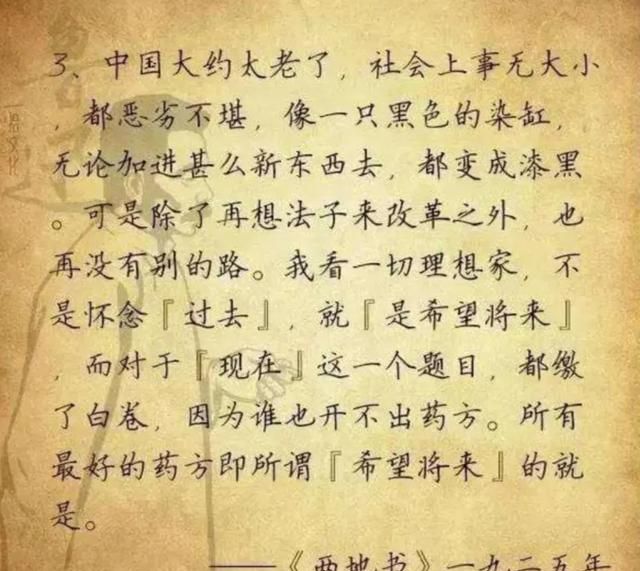 3、中国大约太老了，社会上事无大小
，都恶劣不堪，像一只黑色的染缸，
无论加进甚么新东西去，都变成漆黑
。可是除了再想法子来改革之外，也
再没有别的路。我看一切理想家，不
是怀念『过去』，就『是希望将来』
，而对于『现在』这一个题目，都缴
了白卷，因为谁也开不出药方。所有
最好的药方即所谓『希望将来』的就
是。
——《两地书》一九二五年